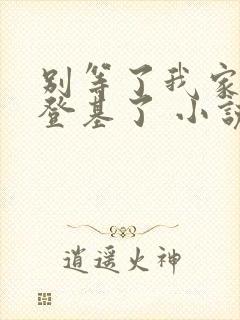 别等了我家
登基了 小说
逍遥火神